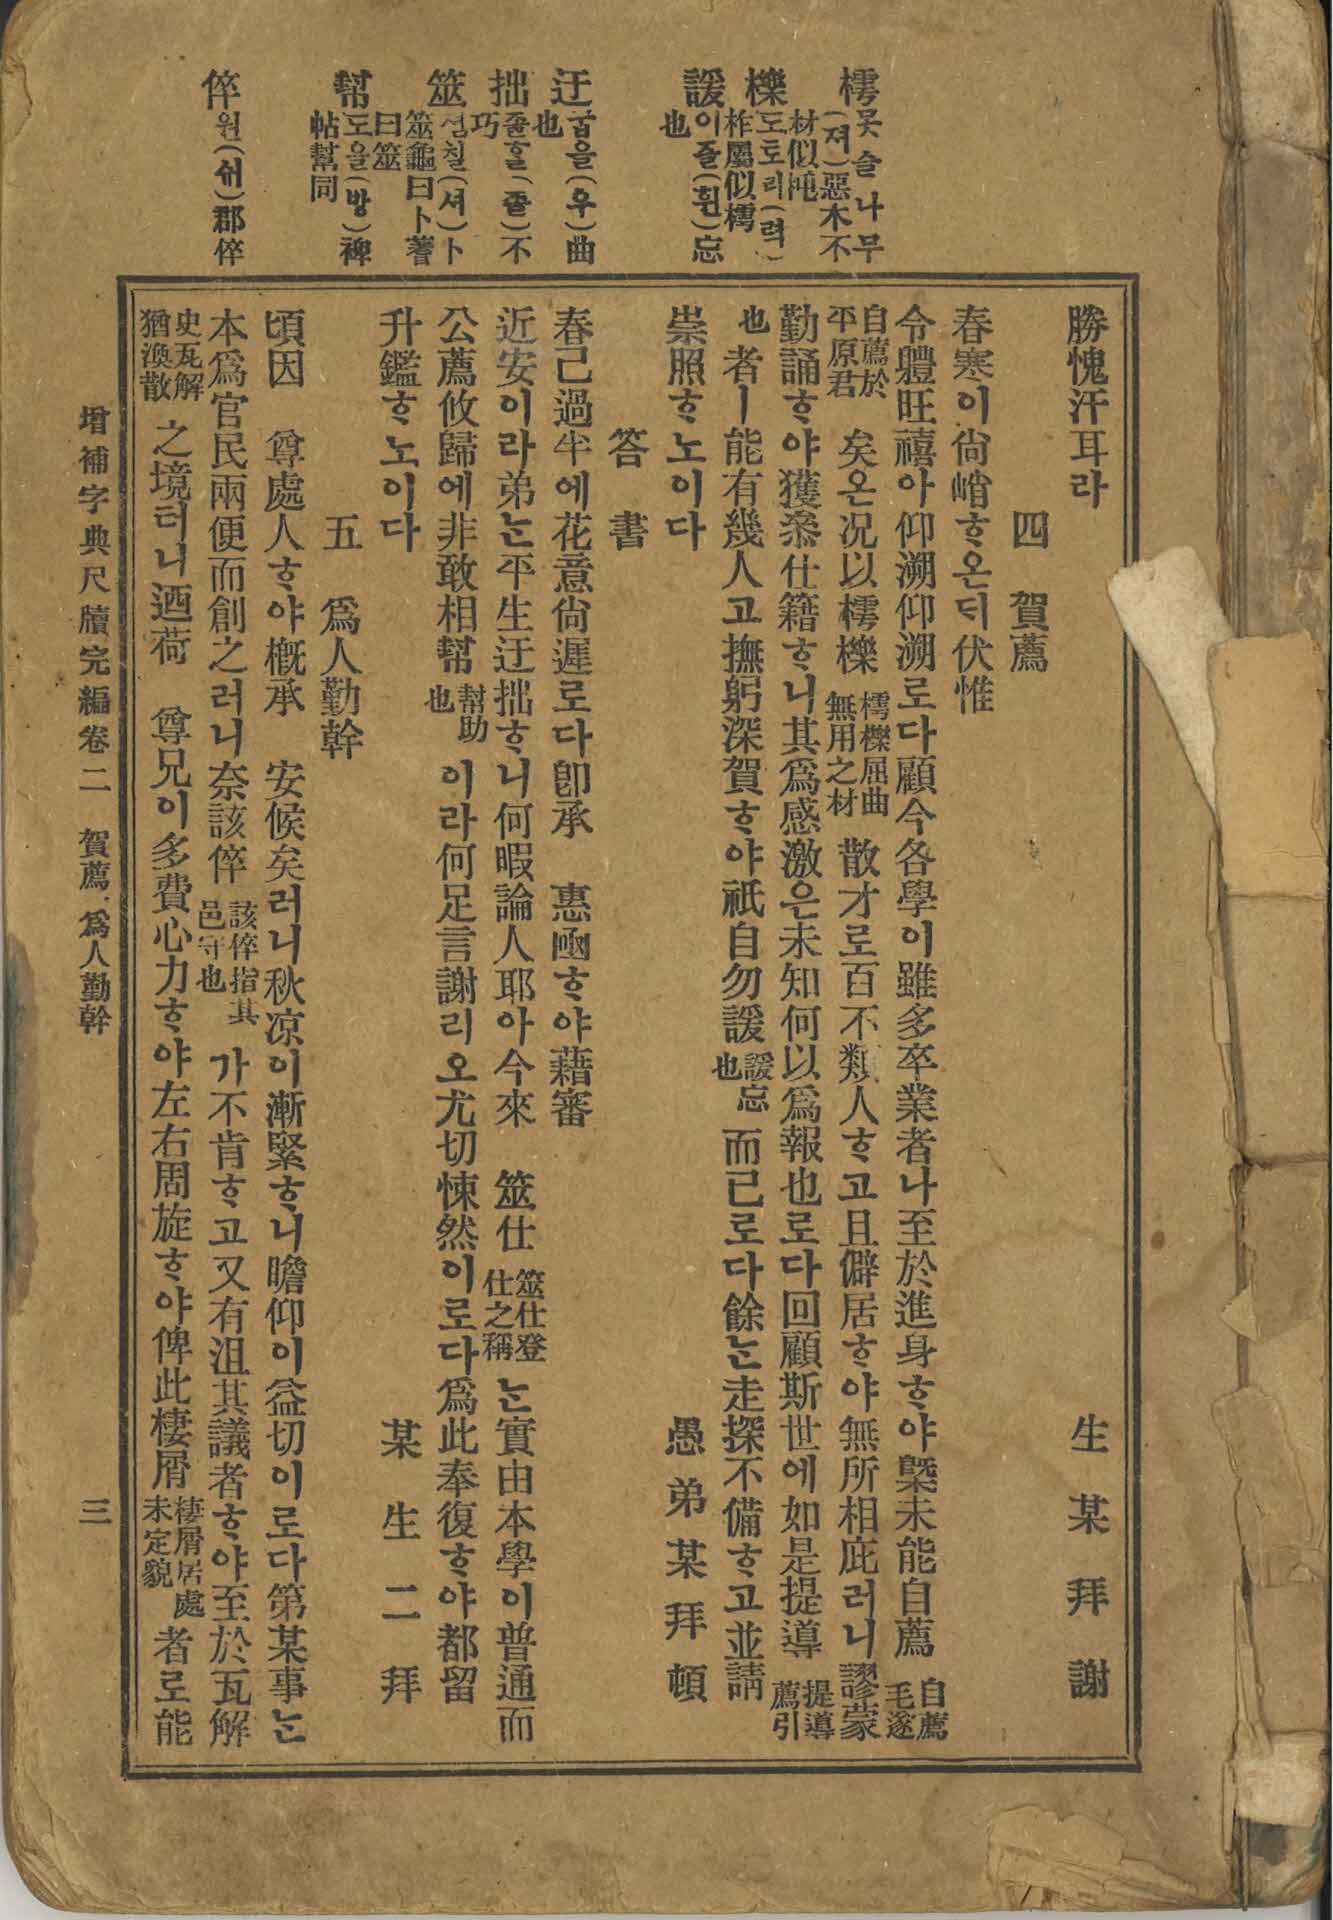 樗 못슬나무(져)惡木不材似
櫟 도토리(력)柞屬似樗
諼 이즐(훤)忘也
迂 굽을(우)曲也
拙 졸흘(졸)不巧
筮 섬칠(셔)卜筮龜曰卜蓍曰筮
幇 도을(방)裨帖幫同
倅 원(쉬)郡倅
勝愧汗耳라 生某拜謝
四 賀薦
春寒이尙峭ᄒᆞ온ᄃᆡ伏惟
令軆旺禧아仰溯仰溯로다顧今各學이雖多卒業者나至於進身ᄒᆞ야槩未能自薦 自薦毛遂
自薦於平原君 矣온况以樗櫟 樗櫟屈曲無用之材 散才로百不類人ᄒᆞ고且僻居ᄒᆞ야無所相庇러니謬蒙
勤誦ᄒᆞ야獲叅仕籍ᄒᆞ니其爲感激은未知何以爲報也로다回顧斯世에如是提導 提導薦引
也 者ㅣ能有幾人고撫躬深賀ᄒᆞ야祇自勿諼 諼忘也 而已로다餘ᄂᆞᆫ走探不備ᄒᆞ고並請
崇照ᄒᆞ노이다 愚弟某拜頓
答書
春己過半에花意尙遲로다卽承 惠凾ᄒᆞ야藉審
近安이라弟ᄂᆞᆫ平生迂拙ᄒᆞ니何暇論人耶아今來 筮仕 筮仕登仕之稱 ᄂᆞᆫ實由本學이普通而
公薦攸歸에非敢相幇 幇助也 이라何足言謝리오尤切悚然이로다爲此奉復ᄒᆞ야都留
升鑑ᄒᆞ노이다 某生二拜
五 爲人勤幹
頃因 尊處人ᄒᆞ야槪承 安候矣러니秋凉이漸緊ᄒᆞ니瞻仰이益切이로다第某事ᄂᆞᆫ
本爲官民兩便而創之러니奈該倅 該倅指其邑守也 가不肯ᄒᆞ고又有沮其議者ᄒᆞ야至於瓦解
史瓦解猶渙散 之境러니迺荷 尊兄이多費心力ᄒᆞ야左右周旋ᄒᆞ야俾此棲屑 棲屑居處未定貌 者로能
增補字典尺牘完編卷二 賀薦、爲人勤幹 三